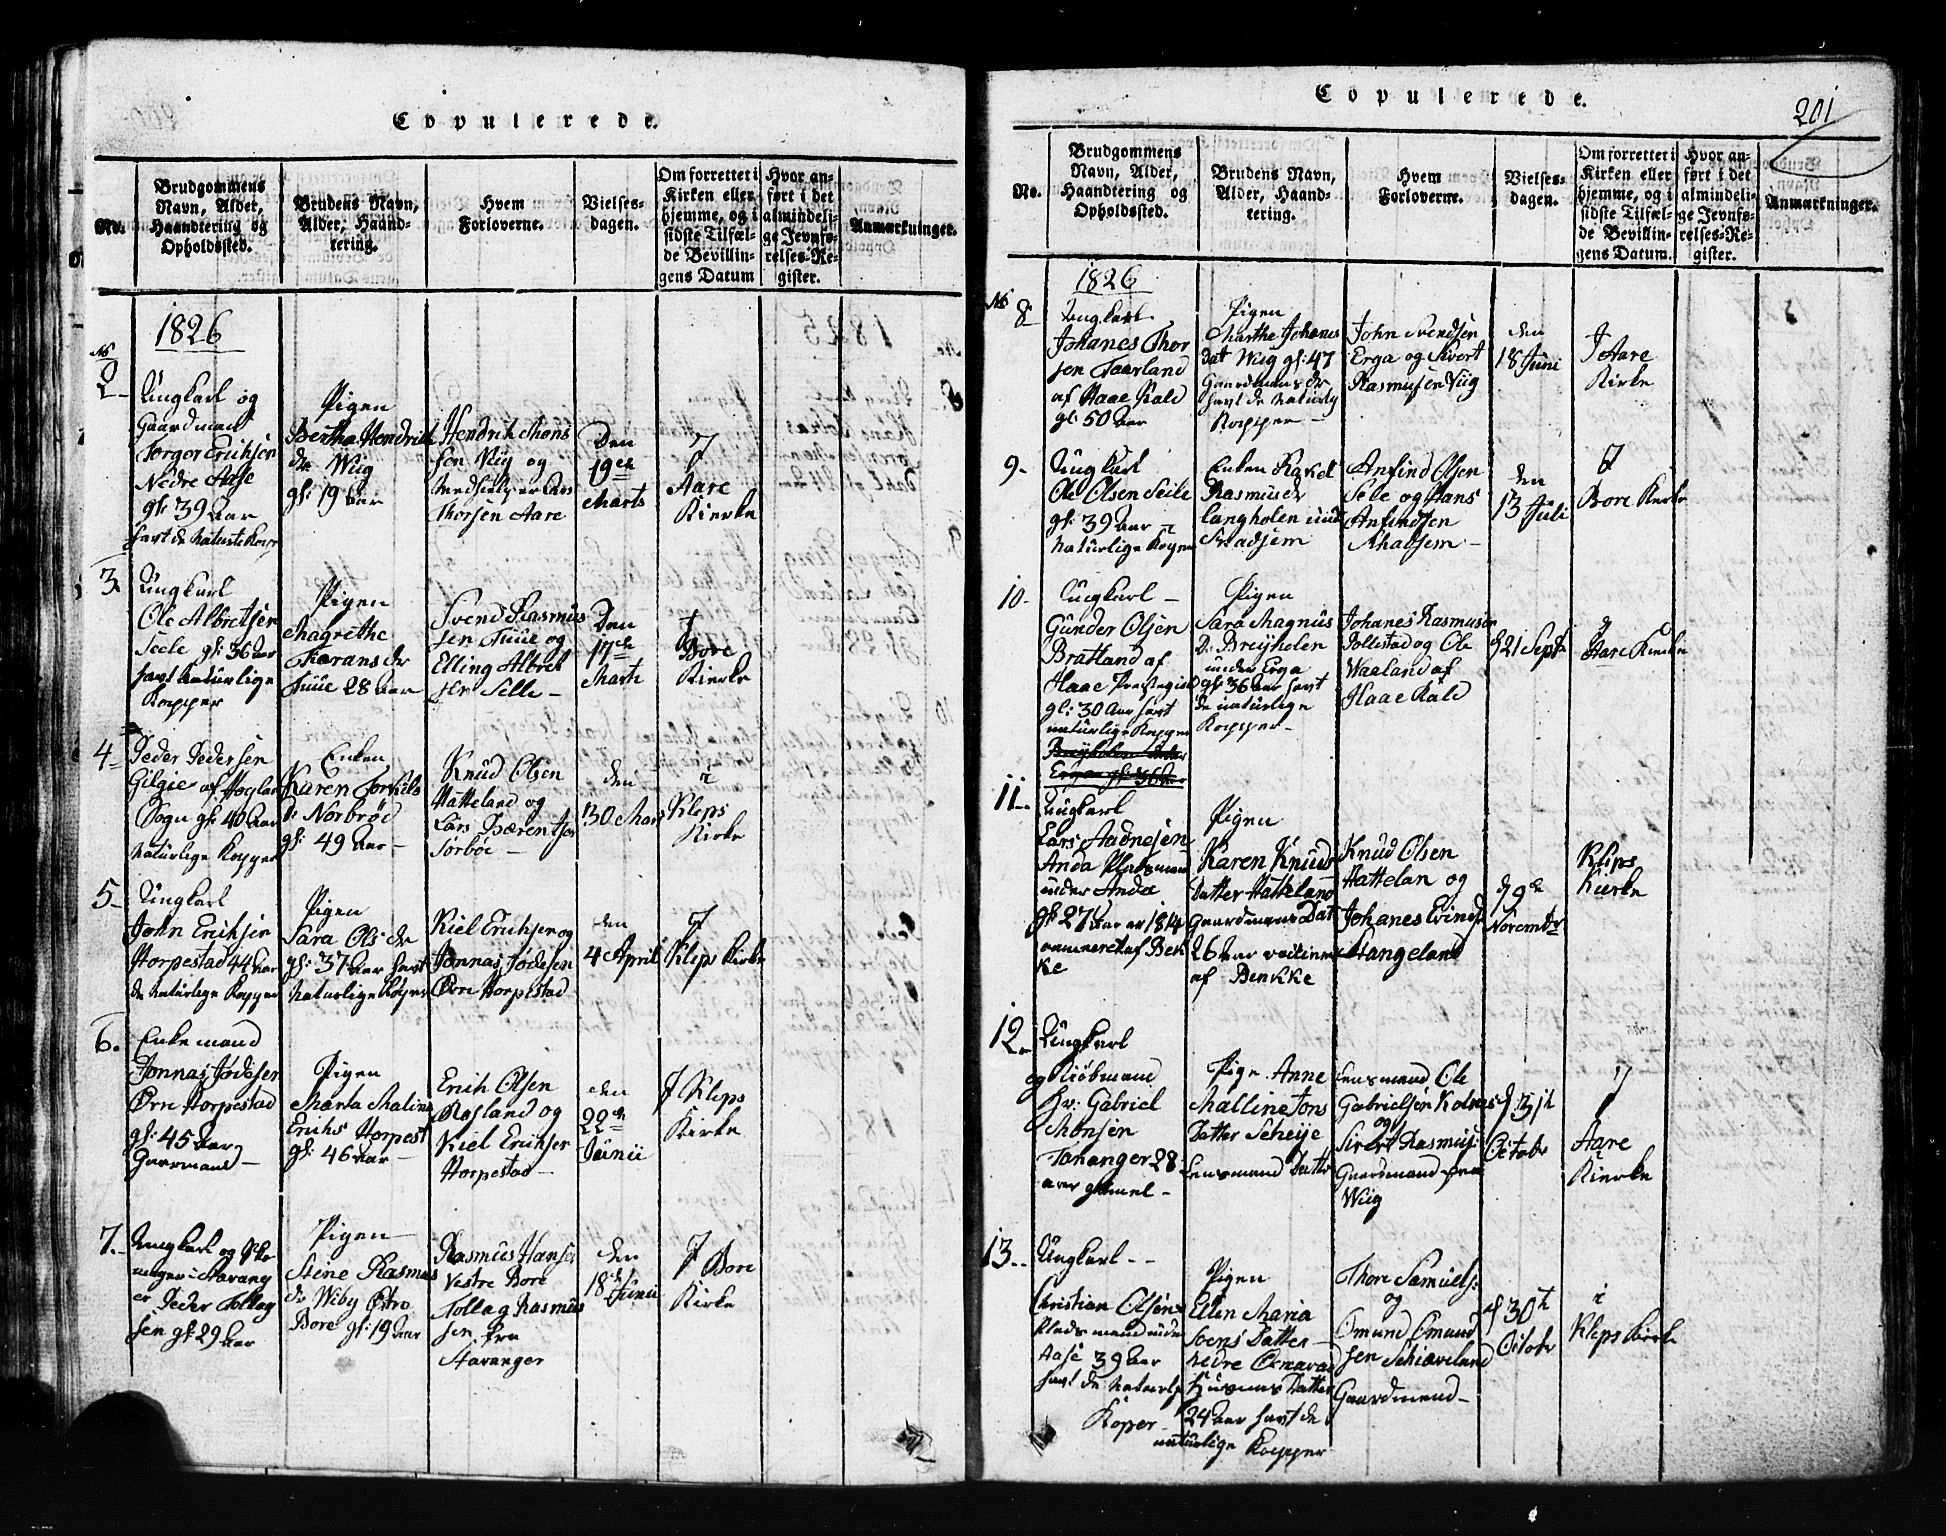 Copulerede.
No.
Brudgommens
Navn, Alder,
Haandtering og
Opholdssted.
Brudens Navn,
Alder, Haand-
tering.
Hvem
Forloverne.
Vielses-
dagen.
Om forrettet i
Kirken eller
hjemme, og i
sidste Tilfæl-
de Bevillin-
gens Datum
Hvor an-
ført i det
almindeli-
ge Jevnfø-
relses-Re-
gister.
Anmærkninger.
1826
No
2
Ungkarl og
Gaardmand
Torger Erichsen
Nedre Aase
gl: 39 Aar
havt de
Pigen
Bertha Hendrich
dr Wiig
gl: 19 Aar
Hendrich Mons
sen Viig og
Thorsen Aare
Den
19de
Marts
I
Aare
Kierke
3
Ungkarl
Ole Albretsen
Seele gl: 36 Aar
havt naturlige
Kopper
Pigen
Magrethe
dr
Tuue 28 Aar
Svend Rasmus
sen Tuue og
Elling Albret
sen Selle -
Den
17de
Marti
I
Bore
Kierke
4
Peder Pedersen
Gilgie af
Sogn gl: 40 Aar
naturlige Kopper
Enken
Karen Torkils
Dr Norbrød
gl: 49 Aar -
Knud Olsen
Hatteland og
Lars
Sørbøe -
den
30 Mars
i
Kleps
Kirke
5-
Ungkarl
John Erichsen
Horpestad 44 Aar
de naturlige Kopper
Pigen
Sara Ols dr
gl: 37 Aar havt
naturlige
Kiel Erichsen og
Jonnas Jødesen
Øvre Horpestad
den
4 April
I
Kleps Kirke
6.
Enkemand
Jonnas Jødesen
Øvre Horpestad
gl: 45 Aar
Gaarmand -
Pigen
Marta Malina
Erichs Horpest
gl: 46 Aar -
Erich Olsen
og
Kiel Erichsen
Horpestad -
den
22de
Junii
I Kleps
Kirke
7.-
Ungkarl og
i Stavang
er Peder Tollag
sen gl: 29 Aar
Pigen -
Stine Rasmus
dr Wiby Østro
Bore gl: 19 Aar
Rasmus Hansen
Vestre Bore
Tollag Rasmus
sen fra
Stavanger
den
18de Junii
I Bore
Kirke
Copulerede.
201
No.
Brudgommens
Navn, Alder,
Haandtering og
Opholdssted.
Brudens Navn,
Alder, Haand-
tering.
Hvem
Forloverne.
Vielses-
dagen.
Om forrettet i
Kirken eller
hjemme, og i
sidste Tilfæl-
de Bevillin-
gens Datum.
Hvor an-
ført i det
almindeli-
ge Jevnfø-
relses-Re-
gister.
Anmærkninger.
1826
No 8
Ungkarl
Johanes Thor
sen Taarland
af Haae Kald
gl: 50 Aar
Pigen
Marthe Johanes
Dat Wiig gl: 47
Gaardmans dr
havt de naturlig
Kopper -
John Svendsen
Erga og Sivert
Rasmusen Viig
den
18 Juni
I Aare
Kirke
9-
Ungkarl
Ole Olsen Seile
gl: 39 Aar
naturlige
Enken Rakel
Rasmusdr
Langholen
Skadsem
Anfind Olsen
Sele og Hans
Anfindsen
Skadsem -
den
13 Juli
I
Bore Kirke
10-
Ungkarl -
Gunder Olsen
Bratland af
Haae Prestegield
gl: 30 Aar havt
naturlige Kopper
Breijholen under
Erga gl: 36 Aar
Pigen
Sara Magnus
Dr Breijholen
under Erga
gl: 36 Aar havt
de naturlige
Kopper -
Johanes Rasmusen
Tollestad og Ole
Waaland af
Haae Kald
d 21 Sept
I
Aare Kirke
11-
Ungkarl
Lars Aadnesen
Anda Pladsmand
under Anda
gl: 27 Aar er 1814
af Bek
ke
Pigen
Karen Knuds
Datter Hatteland
Gaardmans Dat
26 Aar
af Benkke
Knud Olsen
Hattelan og
Johanes Evinds
Hangeland
d 9de
Novembr
Kleps
Kierke
12.
Ungkarl
og Kiøbmand
Hr. Gabriel
Monsen
Tananger 28
aar gamel -
Pige Anne
Malline Tons
Datter Scheije
Lensmand Datte
Lensmand Ole
Gabrielsen
og
Sivert Rasmus:
Gaardmand fra
Wiig
d 31te
Octobr
I
Aare
Kierke
13..
Ungkarl - -
Christian Olsen
Plads mand unde
Aase 39 Aar
havt de naturlig
Koper
Pigen
Ellen Maria
Svens Datter -
nedre
Husmans Datter
24 Aar havt de
naturlige Kopper
Thore Samuels:
og
Omund Omund
sen Schieveland
Gaardmand -
d 30th
Octobr
i
Kleps Kirke